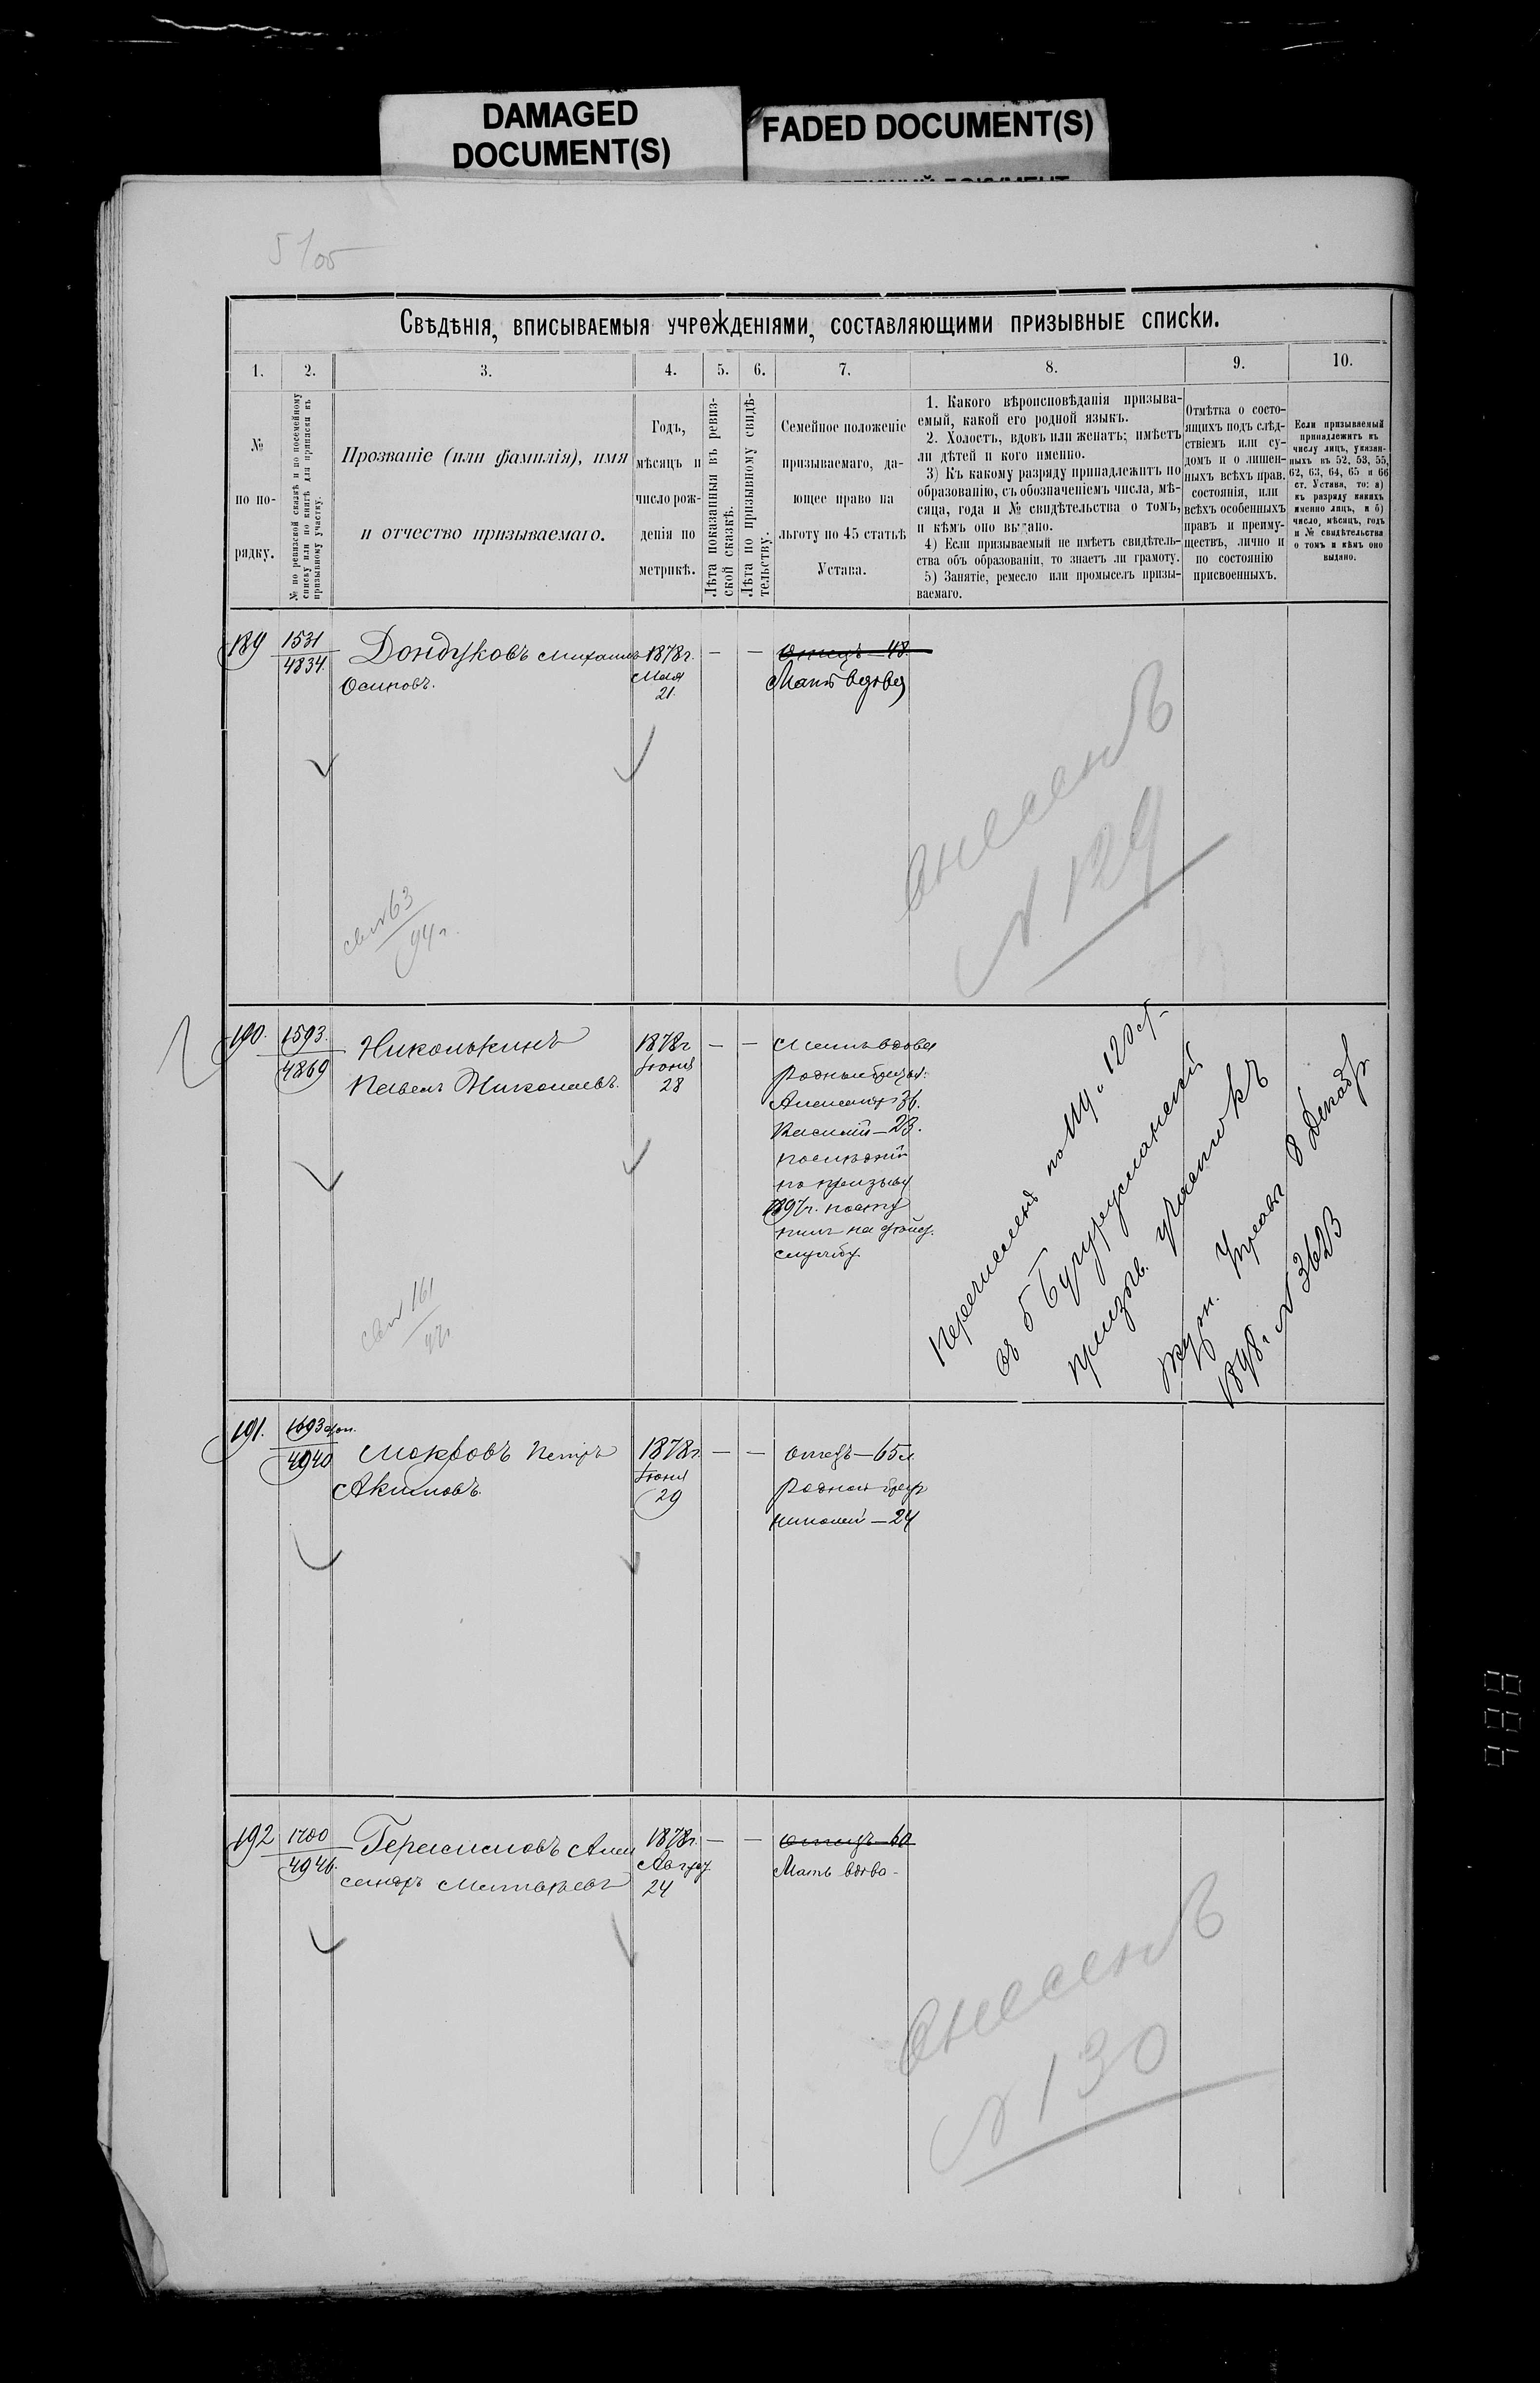 DAMAGED
DOCUMENT(S)
FADED DOCUMENT(S)
Свѣдѣнія, вписываемыя учрежденіями, составляющими призывные списки.
1.
2.
3.
4.
5.
6.
7.
8.
9.
10.
№
по по-
рядку.
№ по ревизской сказкѣ и по посемейному
списку или по книгѣ для приписки къ
призывному участку.
Прозваніе (или фамилія), имя
и отчество призываемаго.
Годъ,
мѣсяцъ и
число рож-
денія по
метрикѣ.
Лѣта показанныя въ ревиз-
ской сказкѣ.
Лѣта по призывному свидѣ-
тельству.
Семейное положеніе
призываемаго, да-
ющее право на
льготу по 45 статьѣ
Устава.
1. Какого вѣроисповѣданія призыва-
емый, какой его родной языкъ.
2. Холостъ, вдовъ или женатъ; имѣетъ
ли дѣтей и кого именно.
3) Къ какому разряду принадлежитъ по
образованію, съ обозначеніемъ числа, мѣ-
сяца, года и № свидѣтельства о томъ,
и кѣмъ оно выдано.
4) Если призываемый не имѣетъ свидѣтель-
ства объ образованіи, то знаетъ ли грамоту.
5) Занятіе, ремесло или промыселъ призы-
ваемаго.
Отмѣтка о состо-
ящихъ подъ слѣд-
ствіемъ или су-
домъ и о лишен-
ныхъ всѣхъ прав.
состоянія, или
всѣхъ особенныхъ
правъ и преиму-
ществъ, лично и
по состоянію
присвоенныхъ.
Если призываемый
принадлежитъ къ
числу лицъ, указан-
ныхъ въ 52, 53, 55,
62, 63, 64, 65 и 66
ст. Устава, то: а)
къ разряду какихъ
именно лицъ, и б)
число, мѣсяцъ, годъ
и № свидѣтельства
о томъ и кѣмъ оно
выдано.
189
1531
4834.
Дондуковъ Михаилъ
Осиповъ.
1878г.
Мая
21.
— —
Отецъ—48.
Мать вдова
внесенъ
№ 129
190.
1593.
4869
Николькинъ
Павелъ Николаевъ.
1878г
Іюня
28
— —
Мать вдова
Родные братья:
Александр 36.
Василій—23.
послѣдній
по призыву
1897г. посту
пилъ на дѣйст.
службу.
Перечисленъ по 119 и 120 ст.
въ 5 Бугурусланскій
призыв. участокъ
Управы 8 Декабр
1898г. № 3623
191.
1693
4940
Мокровъ Петръ
Акимовъ.
1878г.
Іюня
29
— —
отецъ—65л.
Родной братъ
Николай—24
192
1700
4946.
Герасимовъ Алек
сандръ Матвѣевъ
1878г.
Август
24
— —
отецъ—60
Мать вдова
внесенъ
№ 130
988